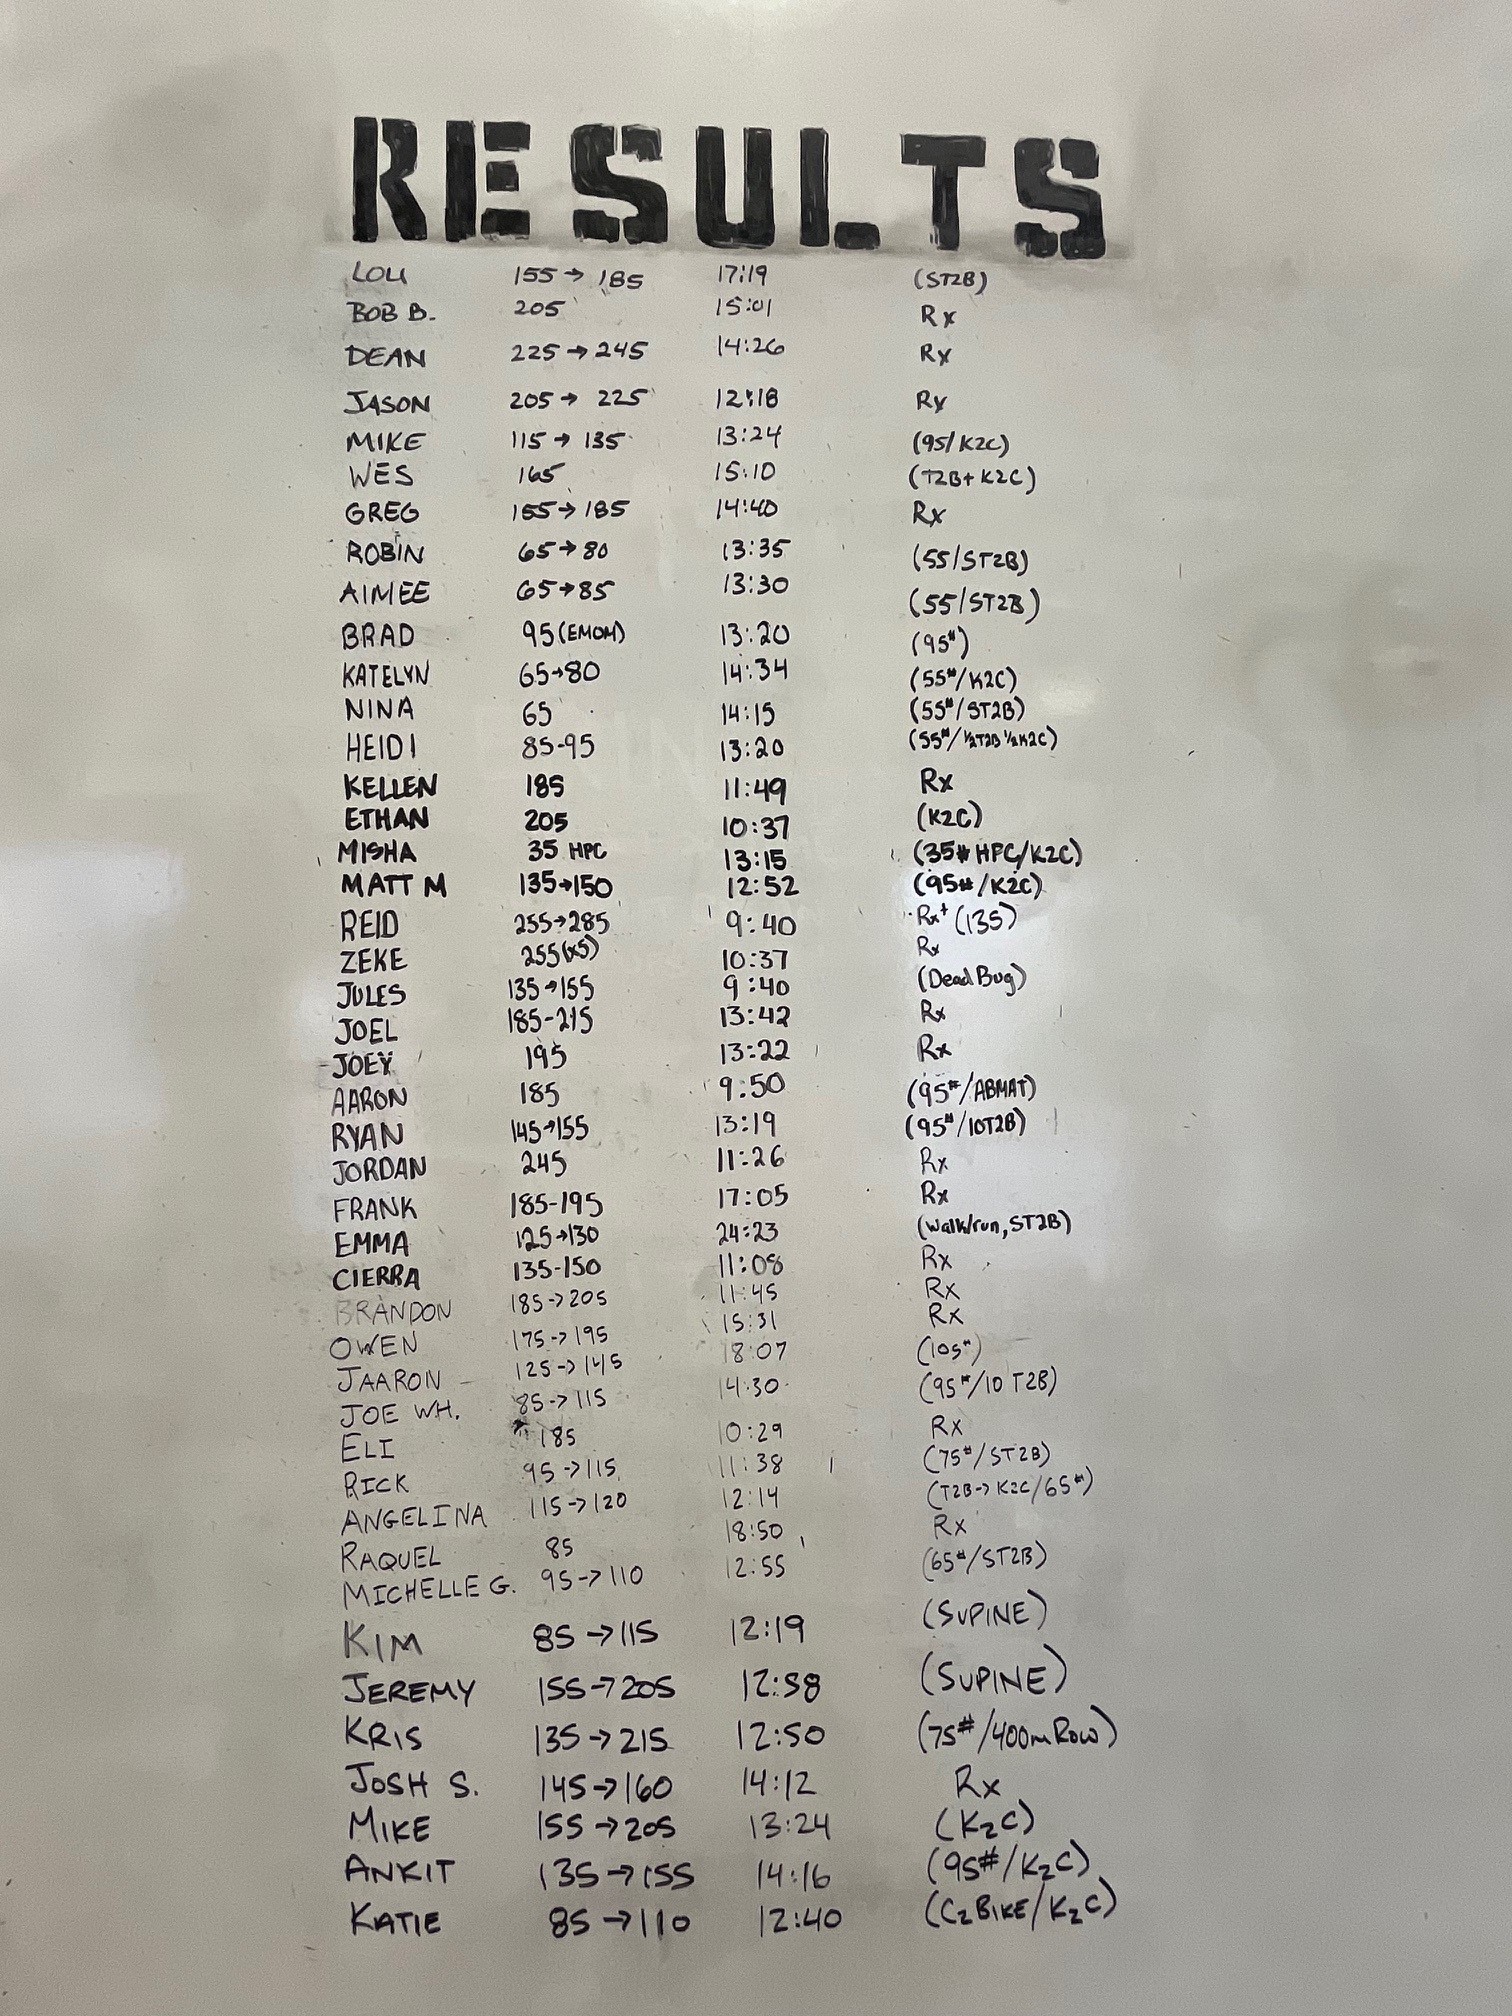 RESULTS
LOU 155→185 17:19 (ST2B)
BOB B. 205 15:01 Rx
DEAN 225→245 14:26 Rx
JASON 205→225 12:18 Rx
MIKE 115→135 13:24 (95/K2C)
WES 165 15:10 (T2B+K2C)
GREG 155→185 14:40 Rx
ROBIN 65→80 13:35 (55/ST2B)
AIMEE 65→85 13:30 (55/ST2B)
BRAD 95(EMOM) 13:20 (95#)
KATELYN 65→80 14:34 (55#/K2C)
NINA 65 14:15 (55#/ST2B)
HEIDI 85-95 13:20 (55#/½T2B ½K2C)
KELLEN 185 11:49 Rx
ETHAN 205 10:37 (K2C)
MISHA 35 HPC 13:15 (35# HPC/K2C)
MATT M 135→150 12:52 (95#/K2C)
REID 255→285 9:40 Rx+ (135)
ZEKE 255(x5) 10:37 Rx
JULES 135→155 9:40 (Dead Bug)
JOEL 185-215 13:42 Rx
JOEY 195 13:22 Rx
AARON 185 9:50 (95#/ABMAT)
RYAN 145→155 13:19 (95#/10T2B)
JORDAN 245 11:26 Rx
FRANK 185-195 17:05 Rx
EMMA 125→130 24:23 (walk/run, ST2B)
CIERRA 135-150 11:08 Rx
BRANDON 185->205 11:45 Rx
OWEN 175->195 15:31 Rx
JAARON 125->145 18:07 (105#)
JOE WH. 85->115 14:30 (95#/10 T2B)
ELI 185 10:29 Rx
RICK 95->115 11:38 (75#/ST2B)
ANGELINA 115->120 12:14 (T2B->K2C/65#)
RAQUEL 85 18:50 Rx
MICHELLE G. 95->110 12:55 (65#/ST2B)
KIM 85→115 12:19 (SUPINE)
JEREMY 155→205 12:58 (SUPINE)
KRIS 135→215 12:50 (75#/400m ROW)
JOSH S. 145→160 14:12 Rx
MIKE 155→205 13:24 (K2C)
ANKIT 135→155 14:16 (95#/K2C)
KATIE 85→110 12:40 (C2 BIKE/K2C)